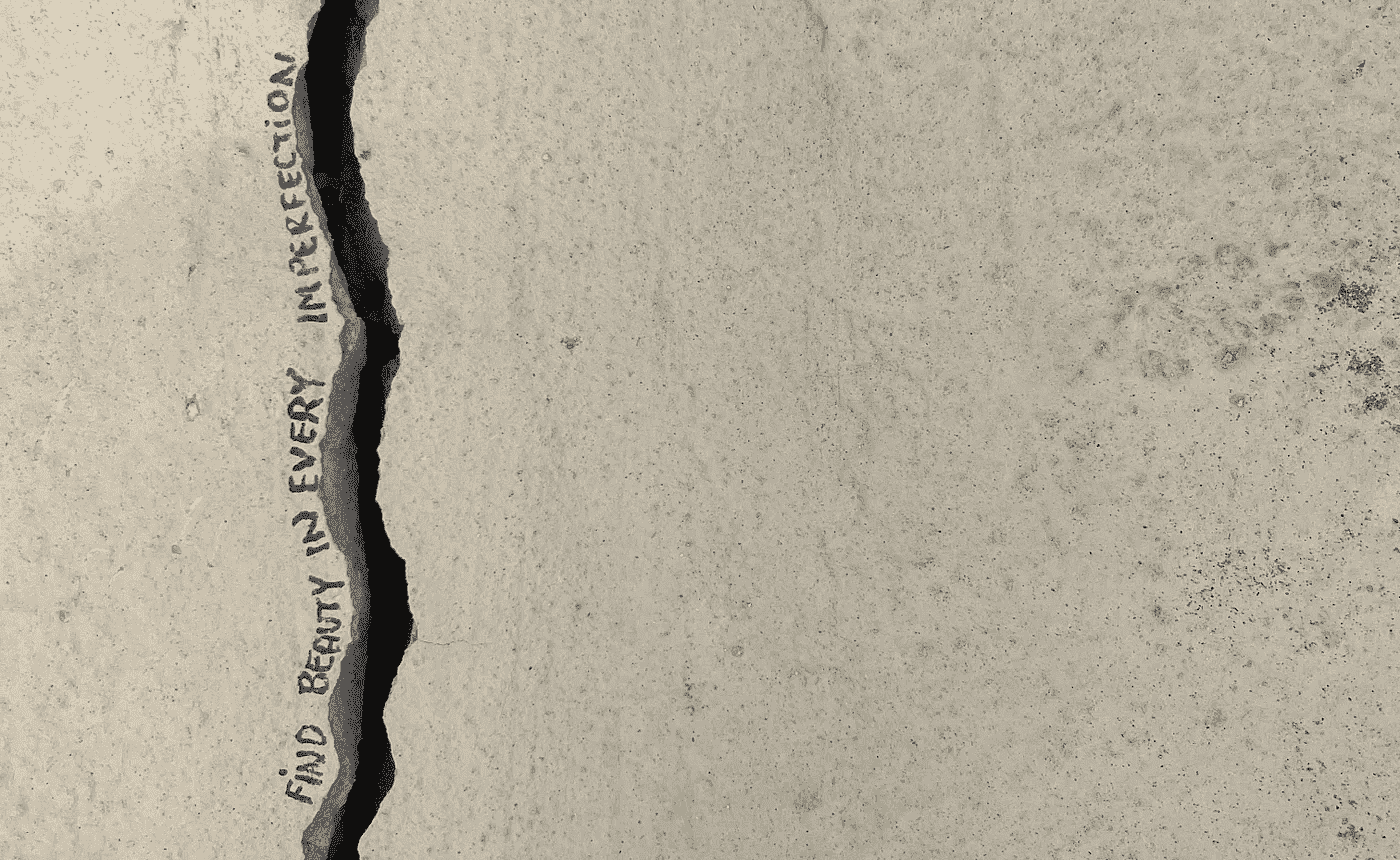 FiND BEAUTY IN EVERY IMPERFECTiON